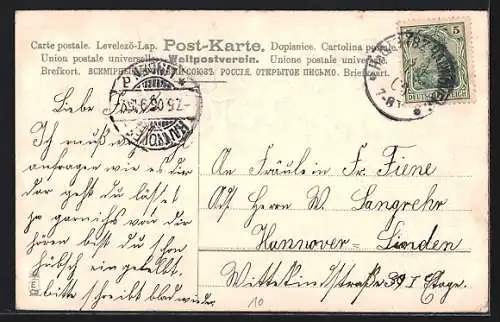 Carte postale. Levelező-Lap. Post-Karte. Dopisnice. Cartolina postale.
Union postale universelle. Weltpostverein. Unione postale universale.
Brefkort. ВСЕМІРНЫЙ СОЮЗЪ. РОССІЯ. ОТКРЫТОЕ ПИСЬМО. Briefkaart.
5
DEUTSCHES REICH
LINDEN
HANNOVER
Liebe
Ich muß
anfragen wie es dir
dar geht du läßt
ja garnichts von dir
hören bist du schon
hübsch eingelebt.
bitte schreibt bald wieder
An Fräulein Fr. Fiene
Adr. Herrn W. Langrehr
Hannover-Linden
Wittekindstraße 39 I Etage.
10